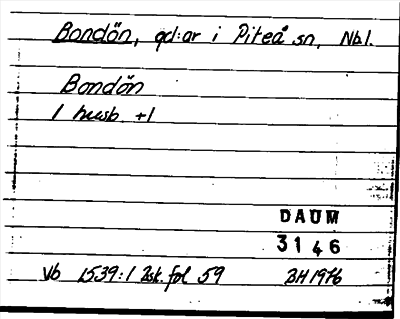 Bondön, gd:ar i Piteå sn, Nbl.
Bondön
1 husb. +1
DAUM
3146
Vb 1539:1 2sk. fol 59 BH 1976